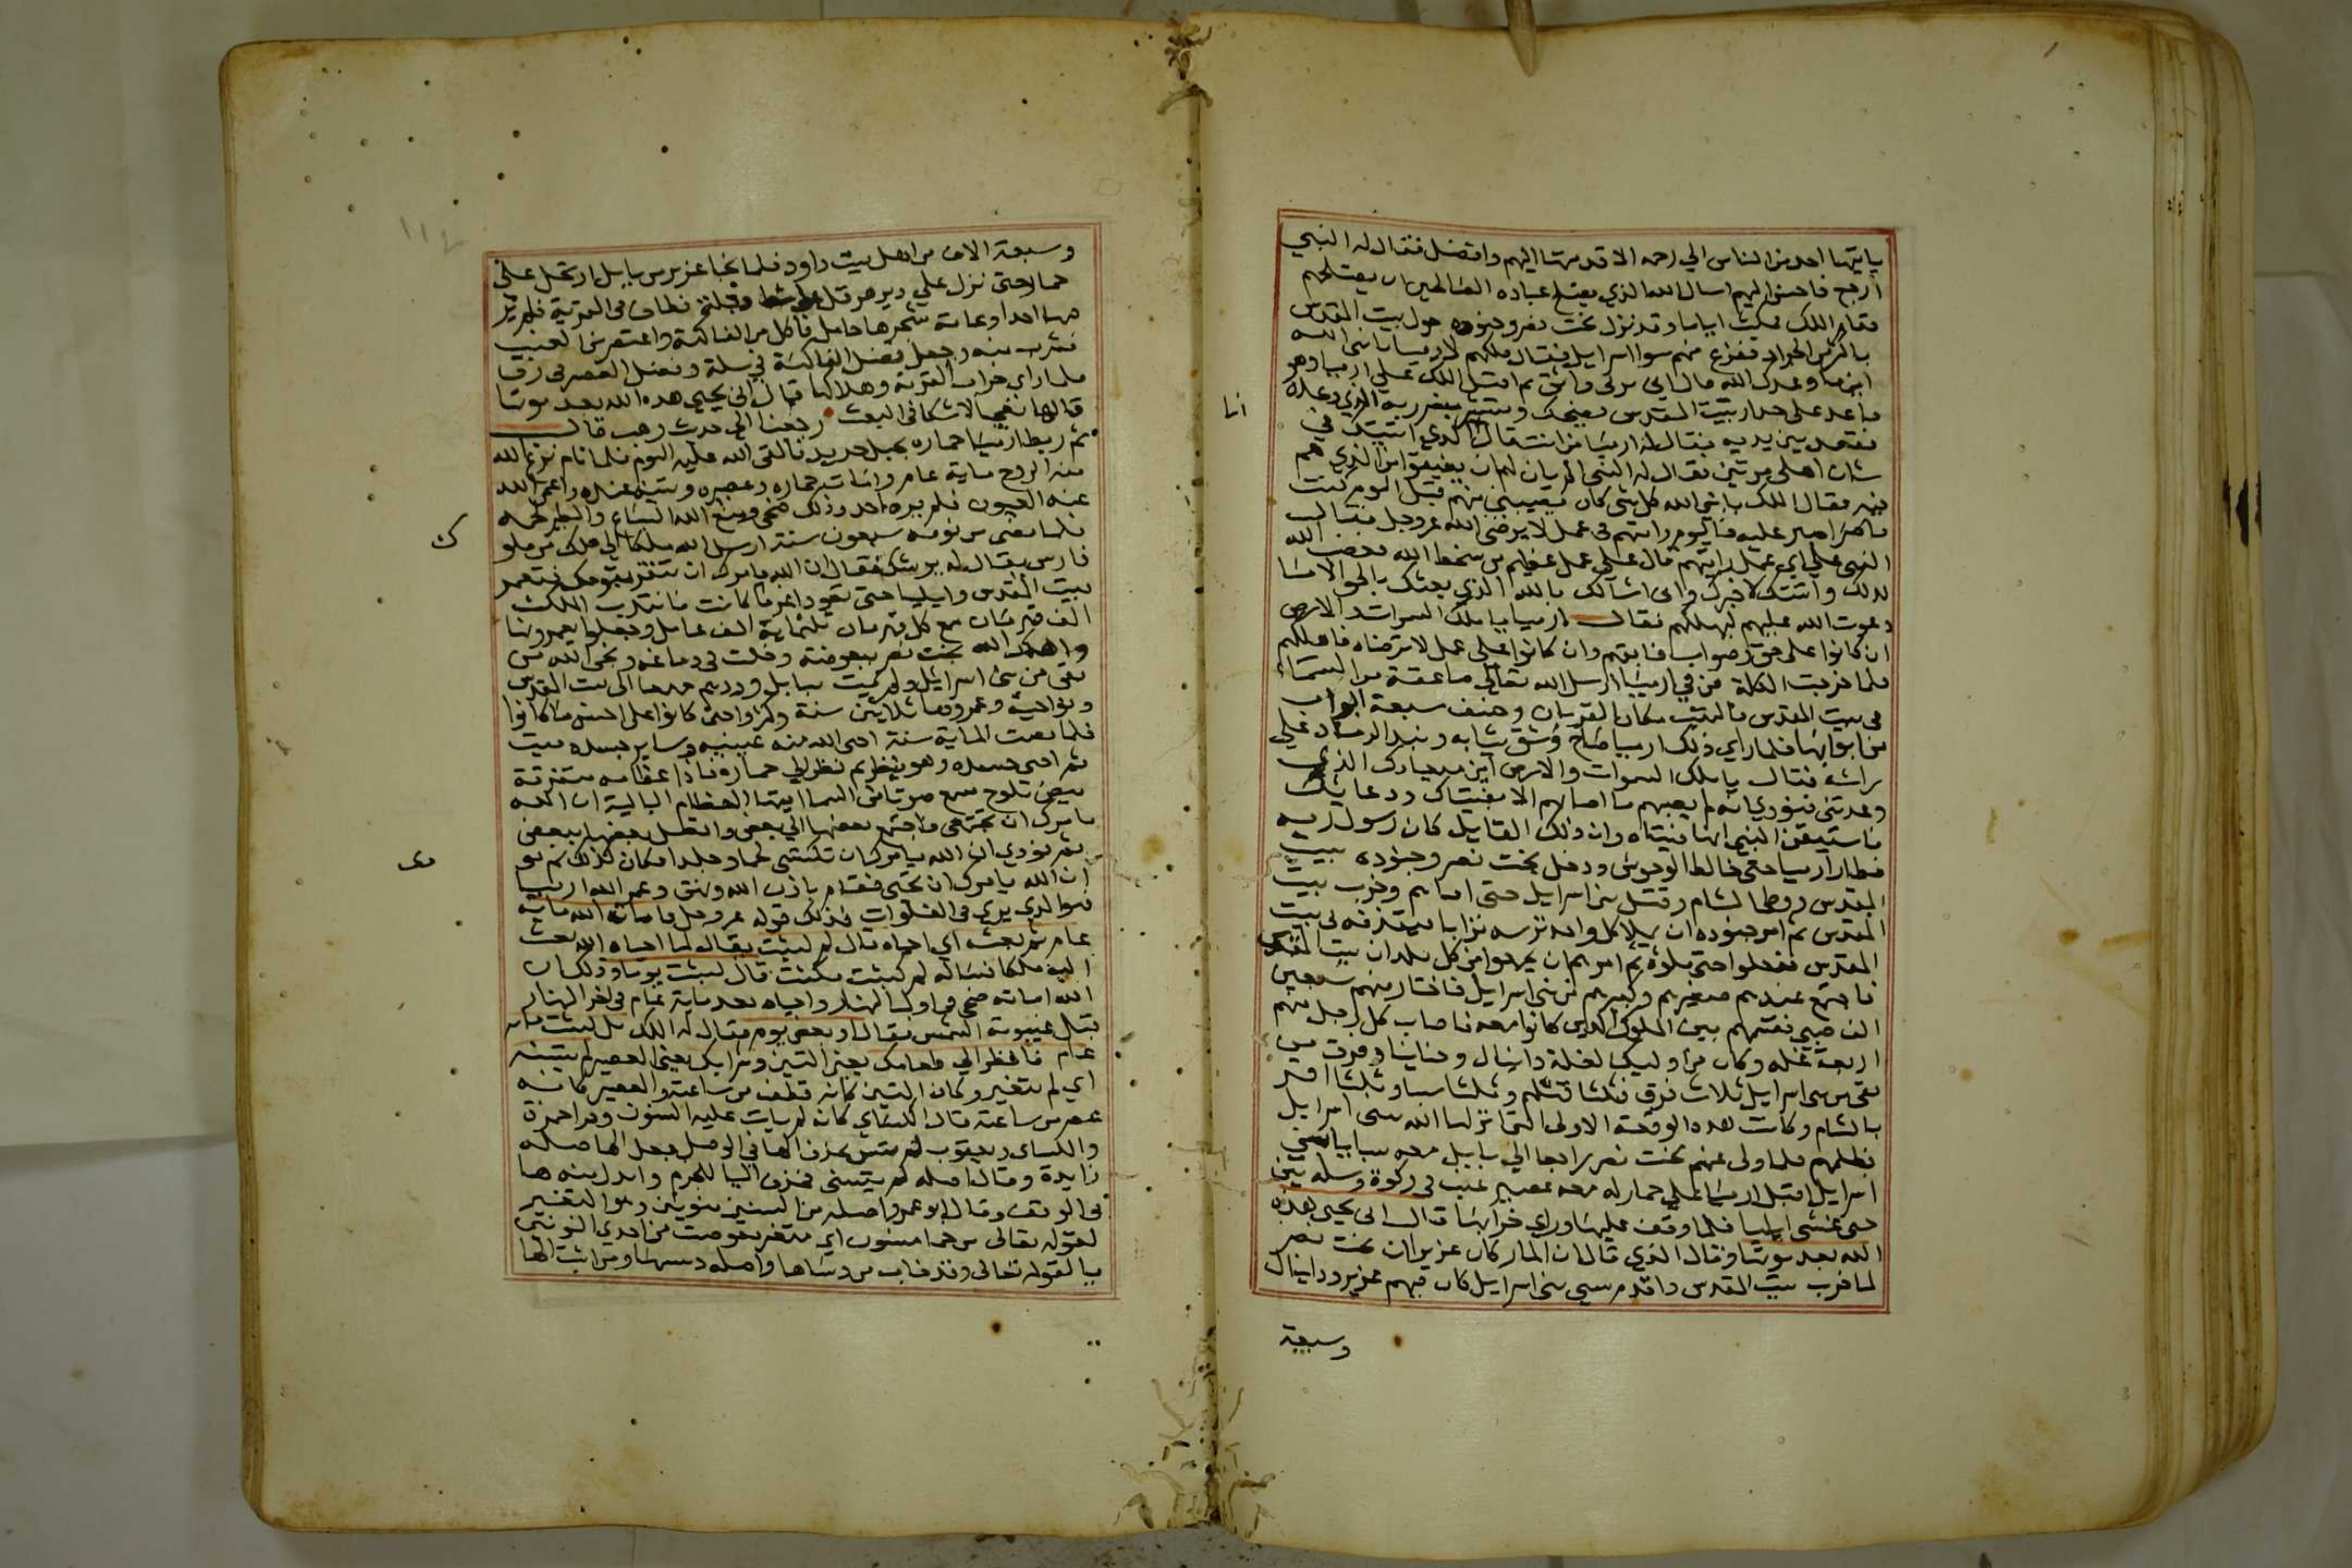 ياتيها احد من الناس الي رحمه الا قدمتها اليهم وافضل فقال له النبي
ارجع فاحسن اليهم اسال الله الذي يصلح عباده الصالحين ان يصلحهم
فقام الملك فمكث اياما وقد نزل بخت نصر وجنوده حول بيت المقدس
باكثر من الجراد ففزع منهم بنوا اسرايل فقال ملكهم لارميا يا نبي الله
اين ما وعدك الله قال اني بربي واثق ثم اقبل الملك علي ارميا وهو
قاعد على جدار بيت المقدس يضحك ويستبشر بنصر ربه الذي وعده
فقعد بين يديه فقال له ارميا من انت قال انا الذي اتيتك في
شان اهلي مرتين فقال له النبي الم يان لهم ان يفيقوا من الذي هم
فيه فقال الملك يا نبي الله كل شي كان يصيبني منهم قبل اليوم كنت
اصبر عليه فاليوم رايتهم في عمل لا يرضي الله عز وجل فقال
النبي علي اي عمل رايتهم قال على عمل عظيم من سخط الله فغضبت لله
لذلك واتيتك لاخبرك واني اسالك بالله الذي بعثك بالحق الا ما
دعوت الله عليهم ليهلكهم فقال ارميا يا ملك السموات والارض
ان كانوا على حق وصواب فابقهم وان كانوا على عمل لا ترضاه فاهلكهم
فلما خرجت الكلمة من في ارميا ارسل الله تعالى صاعقة من السماء
في بيت المقدس فالتهب مكان القربان وخسف سبعة ابواب
من ابوابها فلما راي ذلك ارميا صاح وشق ثيابه ونبذ الرماد علي
راسه فقال يا ملك السموات والارض اين ميعادك الذي
وعدتني فنودي انه لم يصبهم ما اصابهم الا بفتياك ودعايك
فاستيقن النبي انها فتياه وان ذلك القايل كان رسول ربه
فطار ارميا حتى خالط الوحوش ودخل بخت نصر وجنوده بيت
المقدس ووطا الشام وقتل بني اسرايل حتى افناهم وخرب بيت
المقدس ثم امر جنوده ان يملا كل واحد ترسه ترابا فيقذفه في بيت
المقدس ففعلوا حتى ملوه ثم امرهم ان يجمعوا من كل بلدان بيت المقدس
فاجتمع عندهم صغيرهم وكبيرهم من بني اسرايل فاختار منهم سبعين
الف صبي فقسمهم بين الملوك الذين كانوا معه فاصاب كل رجل منهم
اربعة غلمه وكان من اوليك الغلمة دانيال وحنانيا وفرق من
بقي من بني اسرايل ثلاث فرق فثلثا قتلهم وثلثا سبا وثلثا اقر
بالشام وكانت هذه الوقعة الاولى التي انزلها الله ببني اسرايل
بظلمهم فلما ولى عنهم بخت نصر راجعا الي بابل معه سبايا بني
اسرايل اقبل ارميا علي حمار له معه عصير عنب في ركوة وسله تين
حتى غشي ايليا فلما وقف عليها وراي خرابها قال انى يحيى هذه
الله بعد موتها وقال الذي قال ان المار كان عزير ان بخت نصر
لما خرب بيت المقدس واقدم سبي بني اسرايل كان فيهم عزير ودانيال
وسبعة
انا
وسبعة الاف من اهل بيت داود فلما نجا عزير من بابل ارتحل على
حمار حتى نزل علي دير هرقل على شط دجلة فطاف في القرية فلم ير
فيها احدا وعامة شجرها حامل فاكل من الفاكهة واعتصر من العنب
فشرب منه وجعل فضل الفاكهة في سلة وفضل العصير في زق
فلما راي خراب القرية وهلاكها قال انى يحيي هذه الله بعد موتها
قالها تعجبا لا شكا في البعث رجعنا الى حديث وهب قال
ثم ربط ارميا حماره بحبل جديد فالقى الله عليه النوم فلما نام نزع الله
منه الروح ماية عام وامات حماره وعصيره وتينه عنده واعمى الله
عنه العيون فلم يره احد وذلك ضحى ومنع الله السباع والطير لحمه
فلما مضى من نومه سبعون سنة ارسل الله ملكا الى ملك من ملوك
فارس يقال له يوشك فقال ان الله يامرك ان تنفر بقومك فتعمر
بيت المقدس وايليا حتى تعود اعمر ما كانت فانتدب الملك
الف قهرمان مع كل قهرمان ثلثماية الف عامل وجعلوا يعمرونها
واهلك الله بخت نصر ببعوضة دخلت في دماغه ونجى الله من
بقي من بني اسرايل ولم يمت ببابل وردهم جميعا الى بيت المقدس
ونواحيه وعمروها ثلاثين سنة وكثروا حتى كانوا على احسن ما كانوا
فلما مضت الماية سنة احيى الله منه عينيه وساير جسده ميت
ثم احيى جسده وهو ينظر ثم نظر الي حماره فاذا عظامه متفرقة
بيض تلوح سمع صوتا من السما ايتها العظام البالية ان الله
يامرك ان تجتمعي فاجتمع بعضها الي بعض واتصل بعضها ببعض
ثم نودي ان الله يامرك ان تكتسي لحما وجلدا فكان كذلك ثم نو
ان الله يامرك ان تحيى فقام باذن الله ونهق وعمر الله ارميا
فهو الذي يرى في الفلوات فذلك قوله عز وجل فاماته الله ماية
عام ثم بعثه اي احياه قال كم لبثت يقال لما احياه الله بعث
اليه ملكا فساله كم لبثت مكثت قال لبثت يوما وذلك ان
الله اماته ضحى في اول النهار واحياه بعد ماية عام في اخر النهار
قبل غيبوبة الشمس فقال او بعض يوم فقال له الملك بل لبثت ماية
عام فانظر الي طعامك يعني التين وشرابك يعني العصير لم يتسنه
اي لم يتغير وكان التين كانه قطف من ساعته والعصير كانه
عصر من ساعته قال الكسائي كانه لم يات عليه السنون وقرا حمزة
والكسائي ويعقوب لم يتسن بحذف الها في الوصل فجعل الها صله
زايدة وقال اصله لم يتسنى فحذف اليا للجزم وابدل منه ها
في الوقف وقال ابو عمرو اصله من التسنن بنونين وهو التغير
لقوله تعالى من حما مسنون اي متغير فعوضت من احدى النونين
يا لقوله تعالى وقد خاب من دساها واصله دسسها ومن اثبت الها